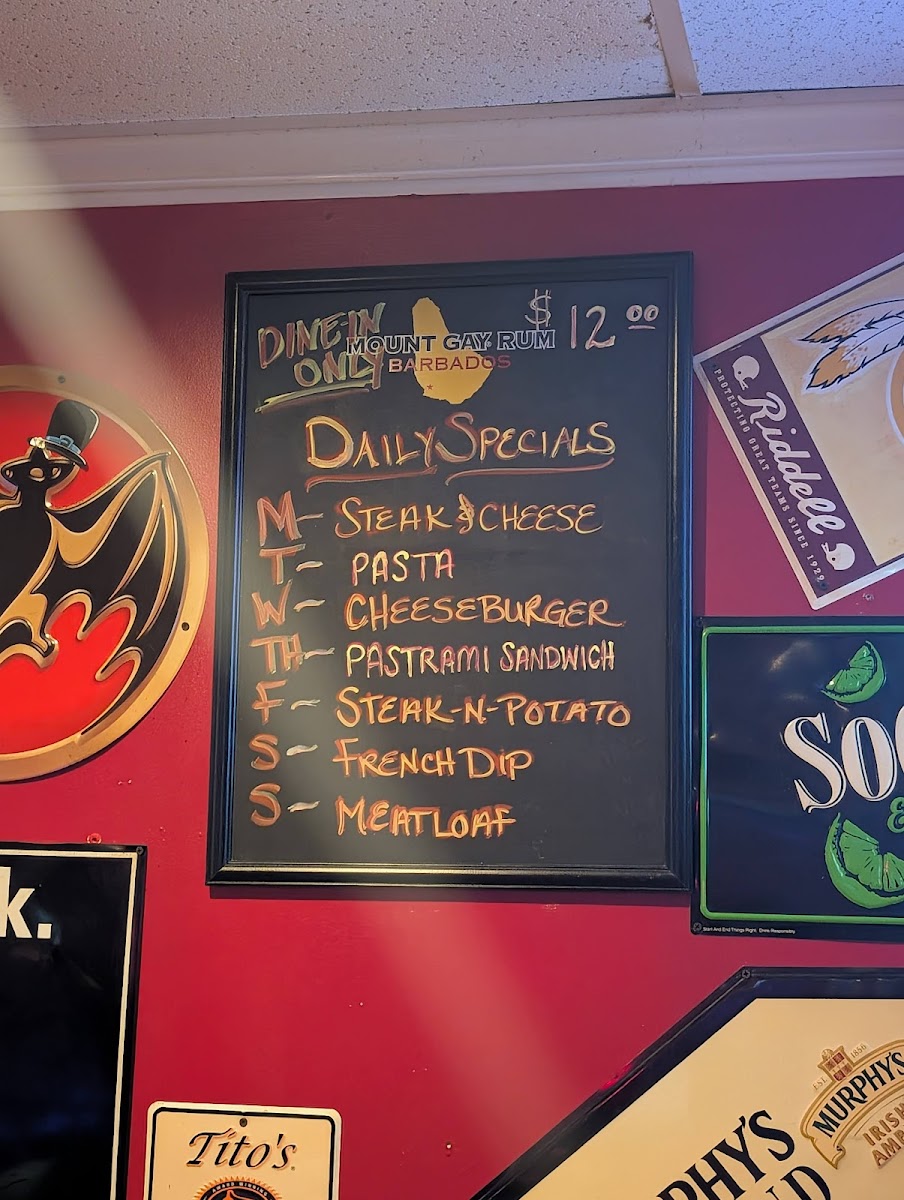 DINE-IN
ONLY
MOUNT GAY RUM
BARBADOS
$12.00
DAILY SPECIALS
M- STEAK & CHEESE
T- PASTA
W- CHEESEBURGER
TH- PASTRAMI SANDWICH
F- STEAK-N-POTATO
S- FRENCH DIP
S- MEATLOAF
Riddell
PROTECTING GREAT TEAMS SINCE 1929
SO
&
Start And End Things Right. Drink Responsibly.
k.
Tito's
AWARD WINNING
EST. 1856
MURPHY'S
IRISH
AM
PHY'S
D